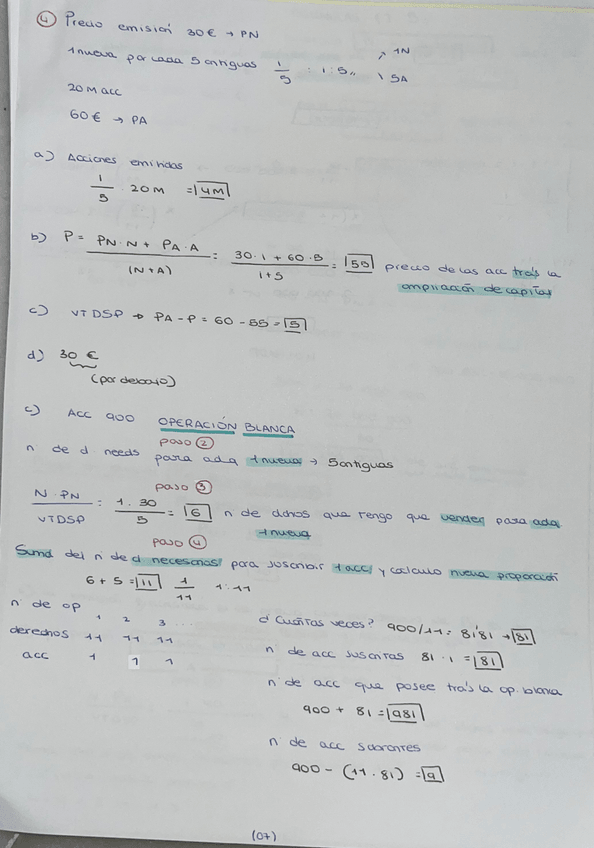 ④ Precio emisión 30€ → PN
1 nueva por cada 5 antiguas 1/5 : 1:5,, ↗ 1N ↘ 5A
20 M acc
60€ → PA
a) Acciones emitidas
1/5 · 20M = 4M
b) P = PN·N + PA·A / (N+A) = 30·1 + 60·5 / 1+5 = 55 precio de las acc tras la
ampliación de capital
c) VTDSP → PA - P = 60 - 55 = 5
d) 30€
(por debajo)
c) Acc 900 OPERACIÓN BLANCA
paso ②
n de d needs para adq 1 nueva → 5 antiguas
paso ③
N·PN / VTDSP = 1·30 / 5 = 6 n de dchos que tengo que vender para adq
1 nueva
paso ④
Suma del n de d necesarios para suscribir 1 acc y calculo nueva proporción
6 + 5 = 11 1/11 1:11
n de op 1 2 3 ...
derechos 11 11 11
acc 1 1 1
d Cuántas veces? 900/11 = 81'81 → 81
n de acc suscritas 81 · 1 = 81
n de acc que posee tras la op. blanca
900 + 81 = 981
n de acc sobrantes
900 - (11 · 81) = 9
(07)